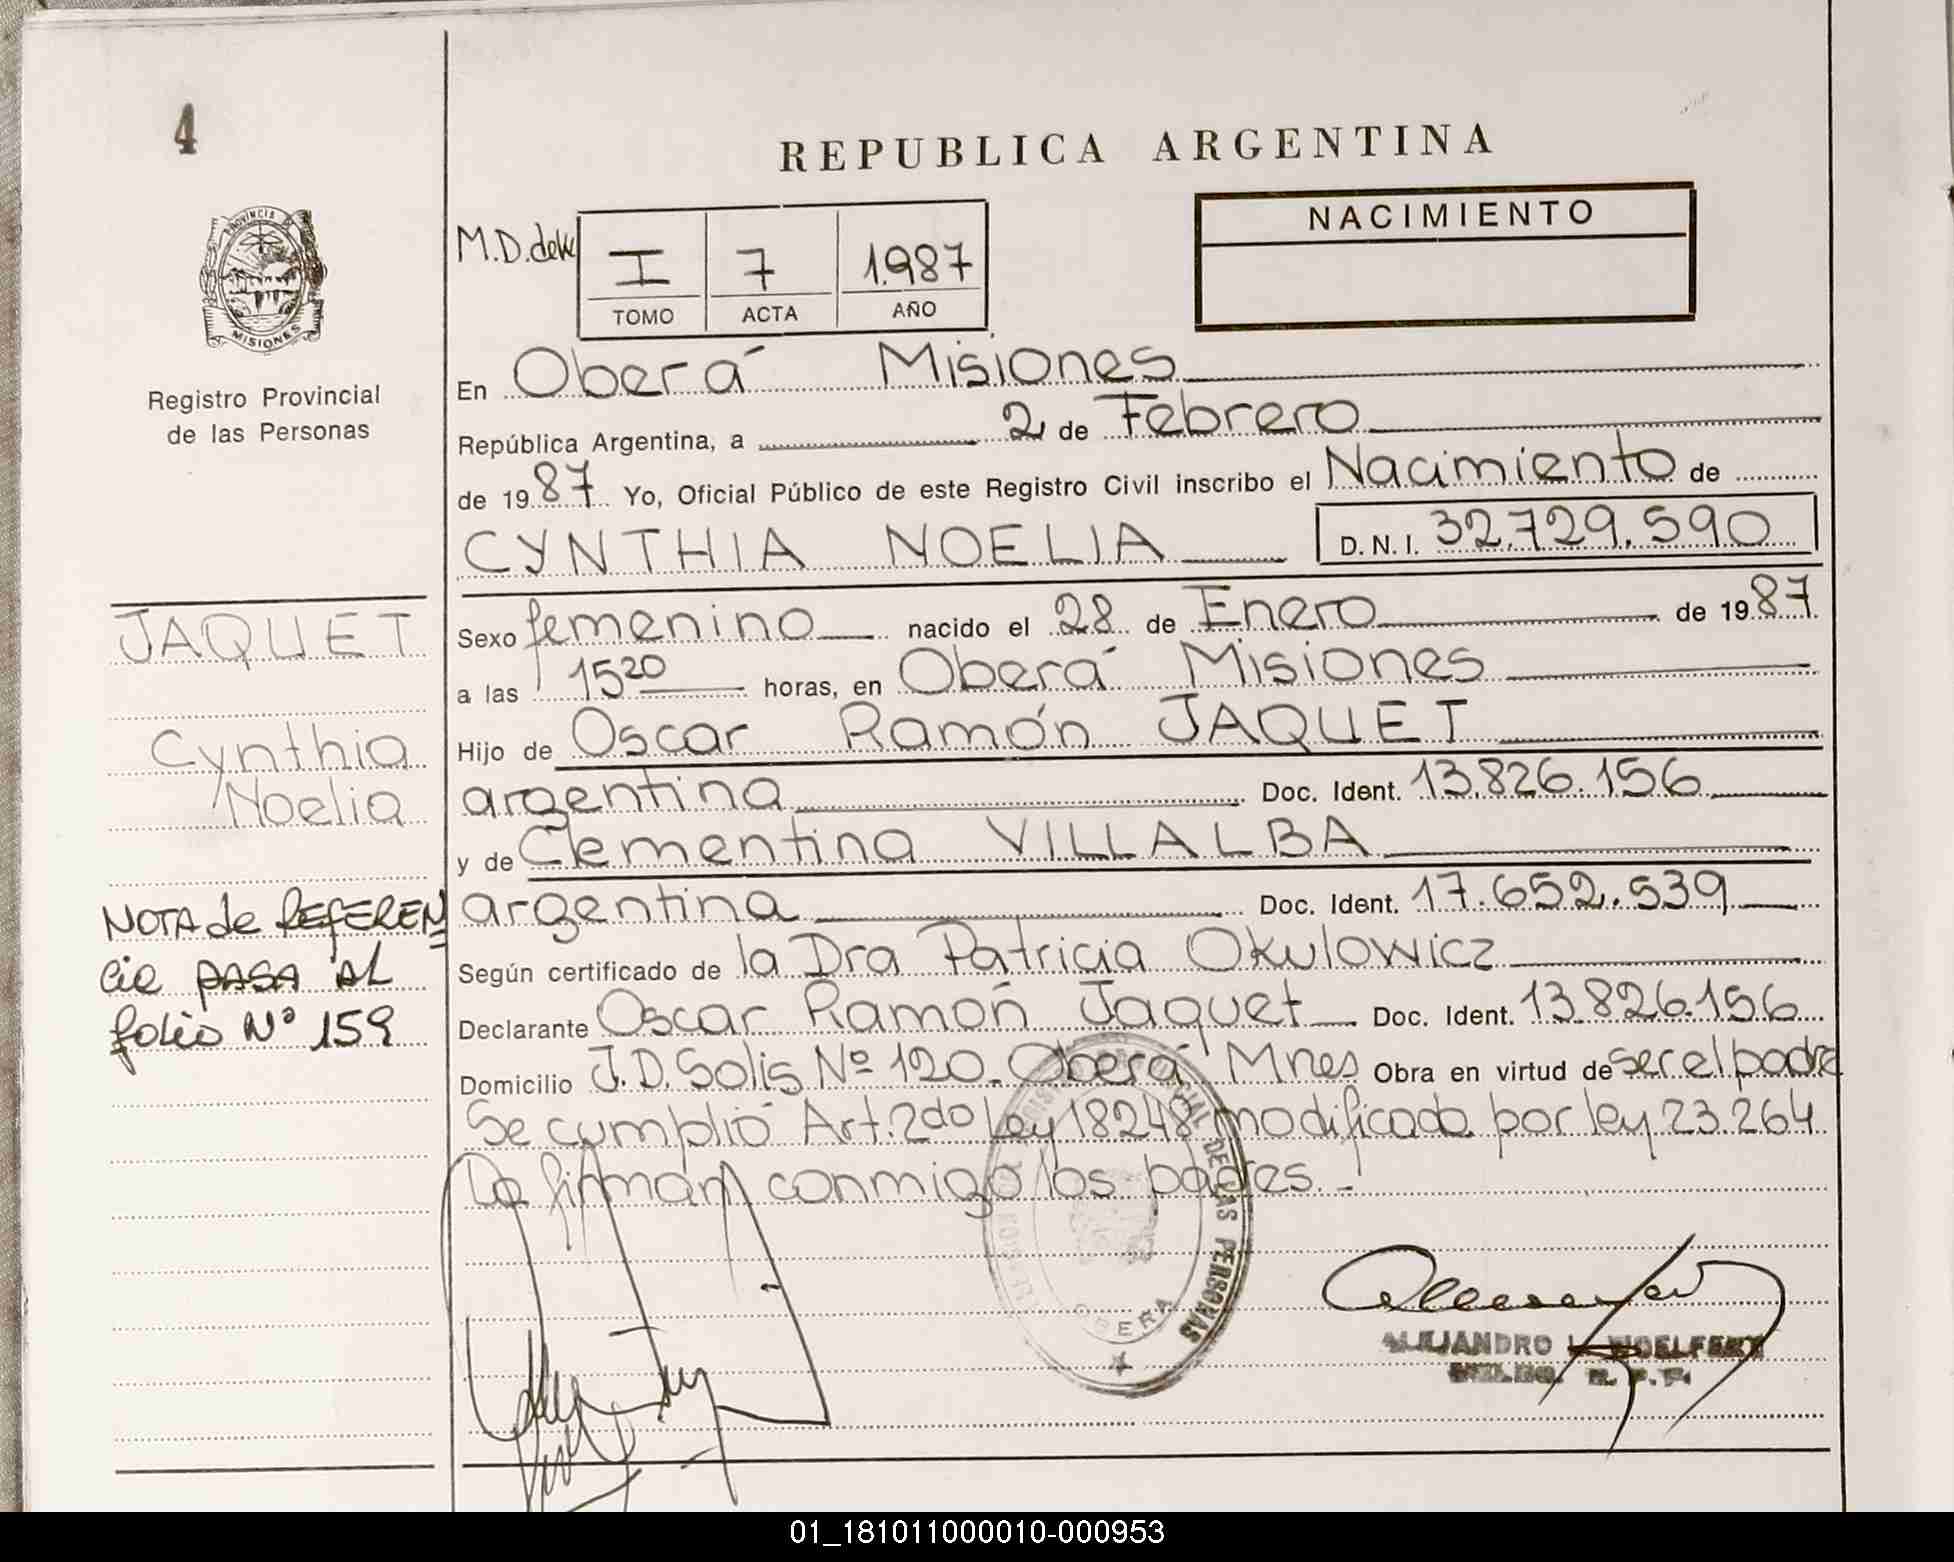 4
REPUBLICA ARGENTINA
PROVINCIA
MISIONES
Registro Provincial
de las Personas
M.D.
I 7 1.987
TOMO ACTA AÑO
NACIMIENTO
En Oberá Misiones
República Argentina, a 2 de Febrero
de 19 87 Yo, Oficial Público de este Registro Civil inscribo el Nacimiento de
CYNTHIA NOELIA D.N.I. 32.729.590
Sexo femenino nacido el 28 de Enero de 19 87
a las 15 20 horas, en Oberá Misiones
Hijo de Oscar Ramón JAQUET
argentina Doc. Ident. 13.826.156
y de Clementina VILLALBA
argentina Doc. Ident. 17.652.539
Según certificado de la Dra Patricia Okulowicz
Declarante Oscar Ramón Jaquet Doc. Ident. 13.826.156
Domicilio J.D. Solis Nº 120. Oberá Mnes Obra en virtud de ser el padre
Se cumplió Art. 2do Ley 18248 modificada por ley 23.264
La firman conmigo los padres.-
JAQUET
Cynthia
Noelia
NOTA de REFEREN
cia PASA AL
folio Nº 159
DE LAS PERSONAS
OBERA
ALEJANDRO
01_181011000010-000953